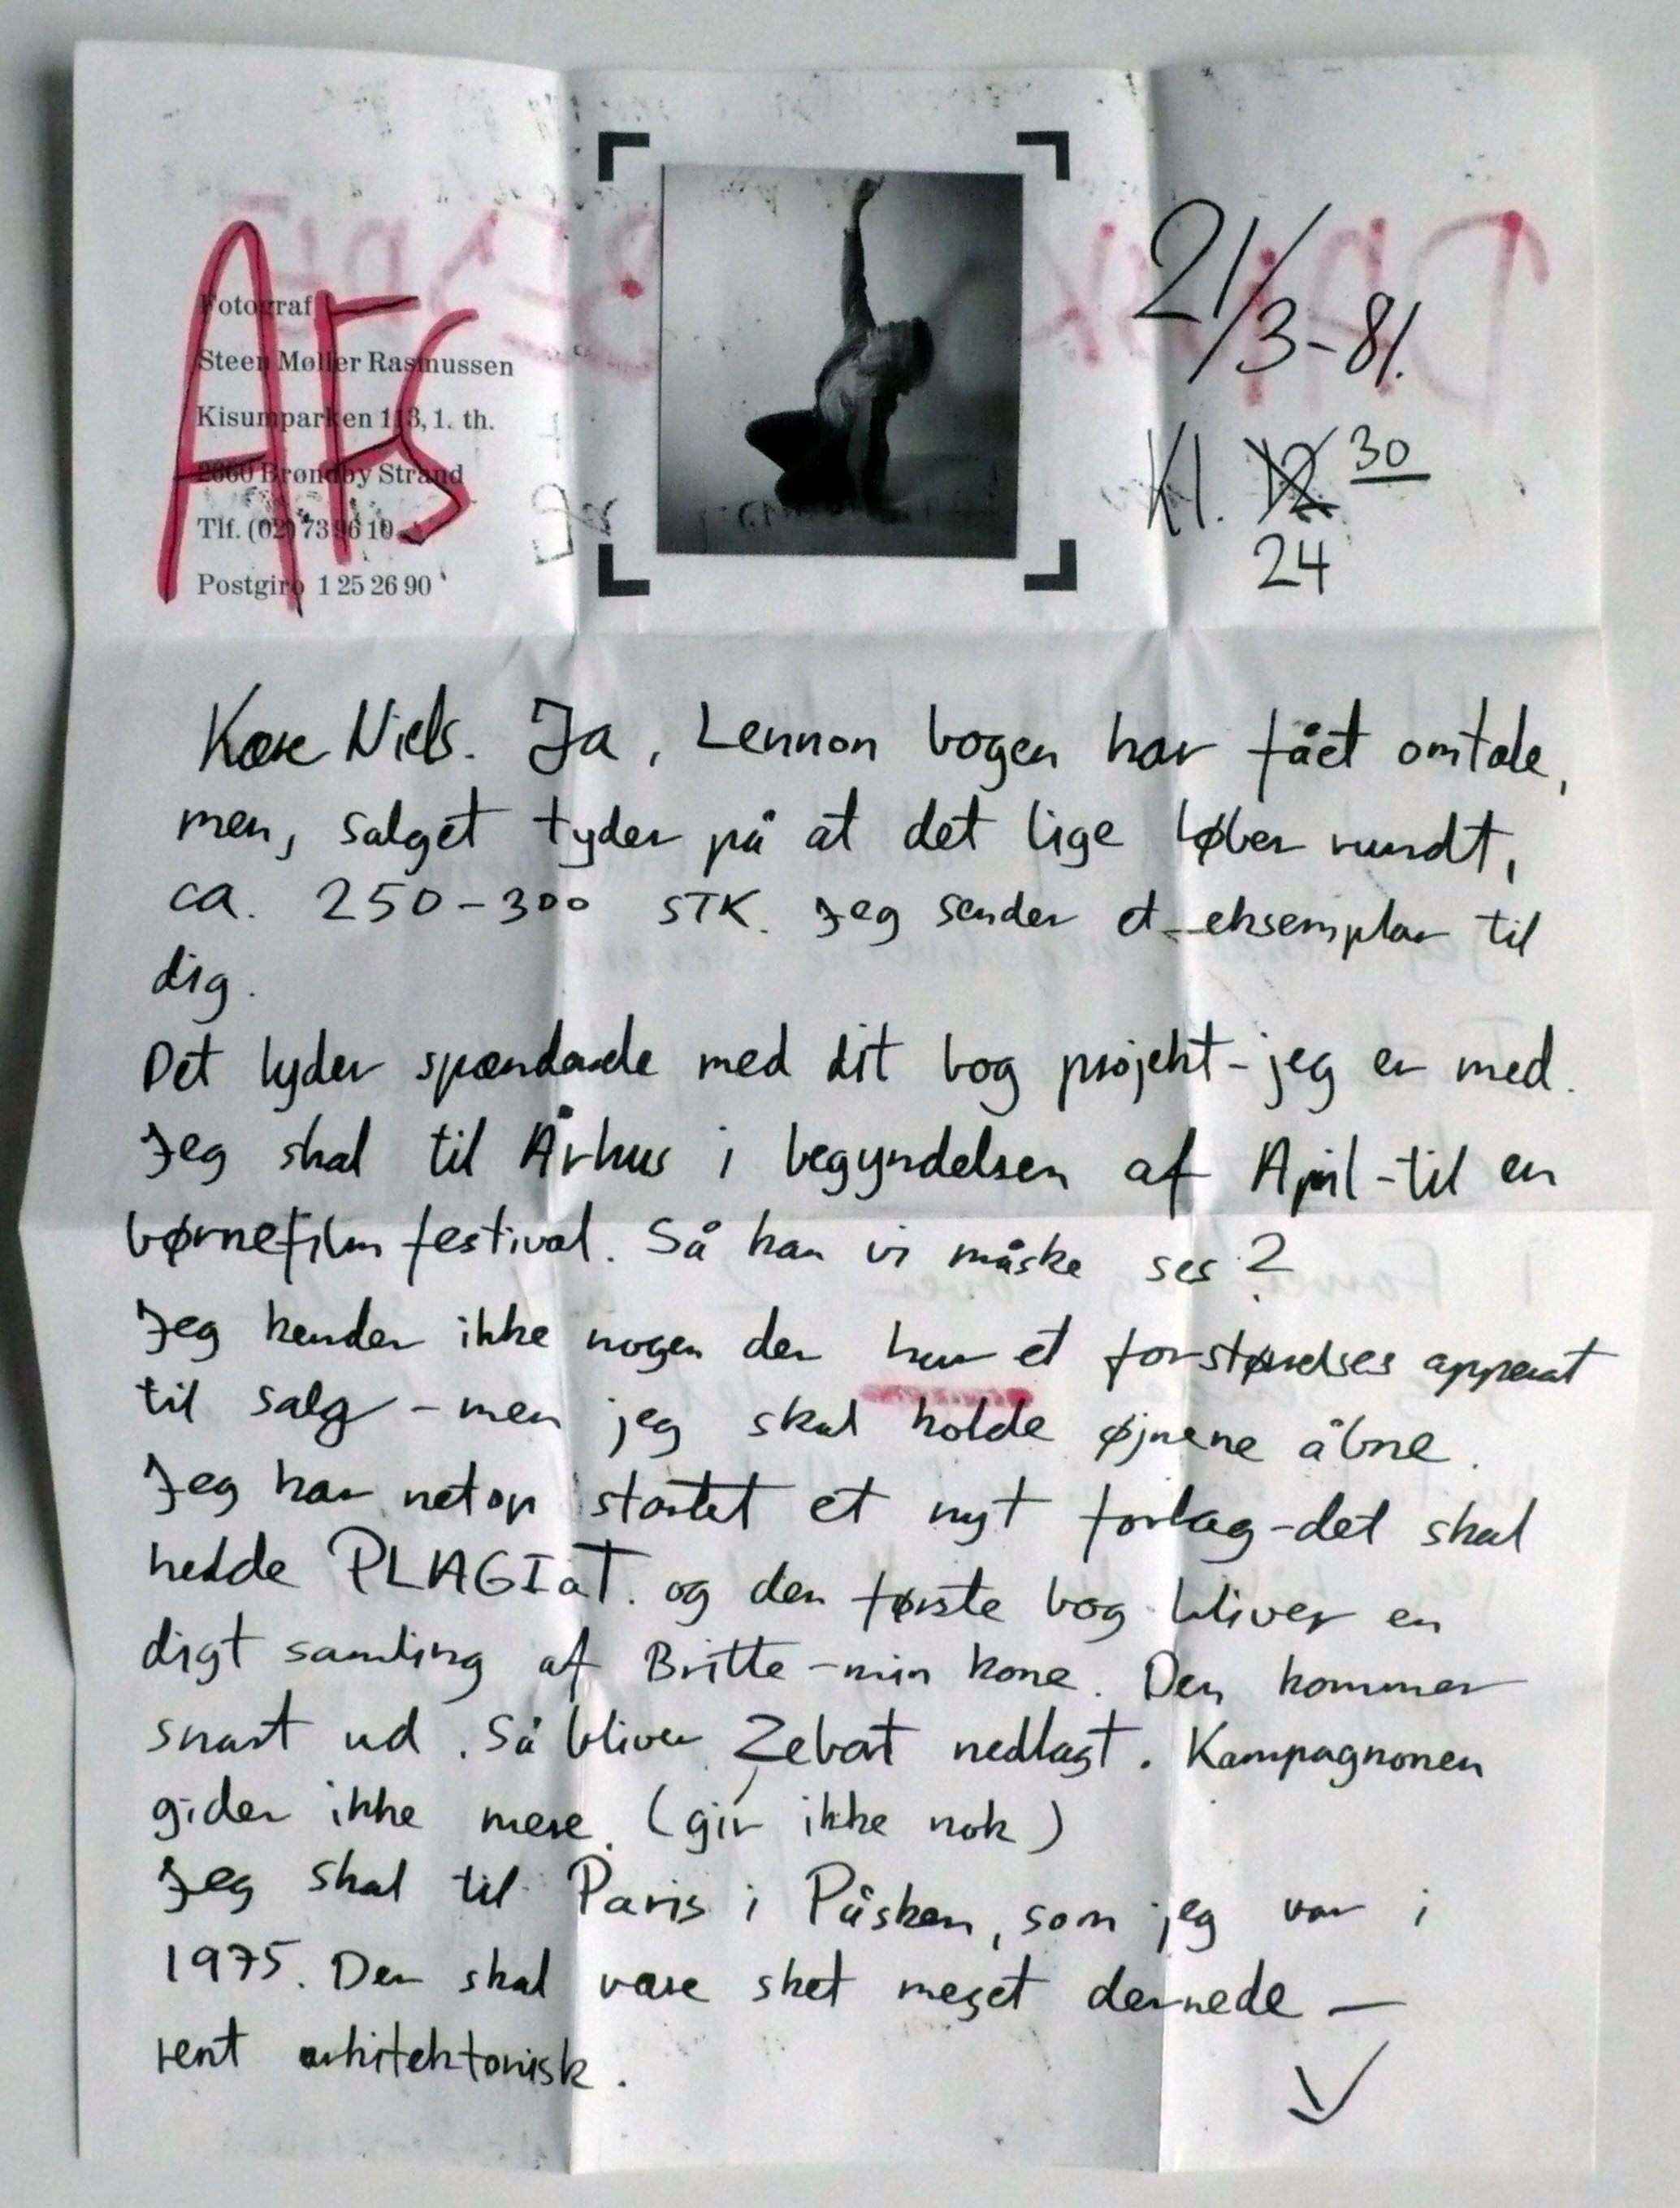 AFS
Fotograf
Steen Møller Rasmussen
Kisumparken 113, 1. th.
2660 Brøndby Strand
Tlf. (02) 73 96 10
Postgiro 1 25 26 90
21/3-81.
Kl. 12 30
24
Kære Niels. Ja, Lennon bogen har fået omtale,
men, salget tyder på at det lige løber rundt,
ca. 250-300 STK. Jeg sender et eksemplar til
dig.
Det lyder spændende med dit bog projekt - jeg er med.
Jeg skal til Århus i begyndelsen af April - til en
børnefilm festival. Så kan vi måske ses?
Jeg kender ikke nogen der har et forstørrelses apparat
til salg - men jeg skal holde øjnene åbne.
Jeg har netop startet et nyt forlag - det skal
hedde PLAGIaT. og den første bog bliver en
digt samling af Britte - min kone. Den kommer
snart ud. Så bliver Zebat nedlagt. Kampagnonen
gider ikke mere. (giv ikke nok)
Jeg skal til Paris i Påsken, som jeg var i
1975. Der skal være sket meget dernede —
rent arkitektonisk.